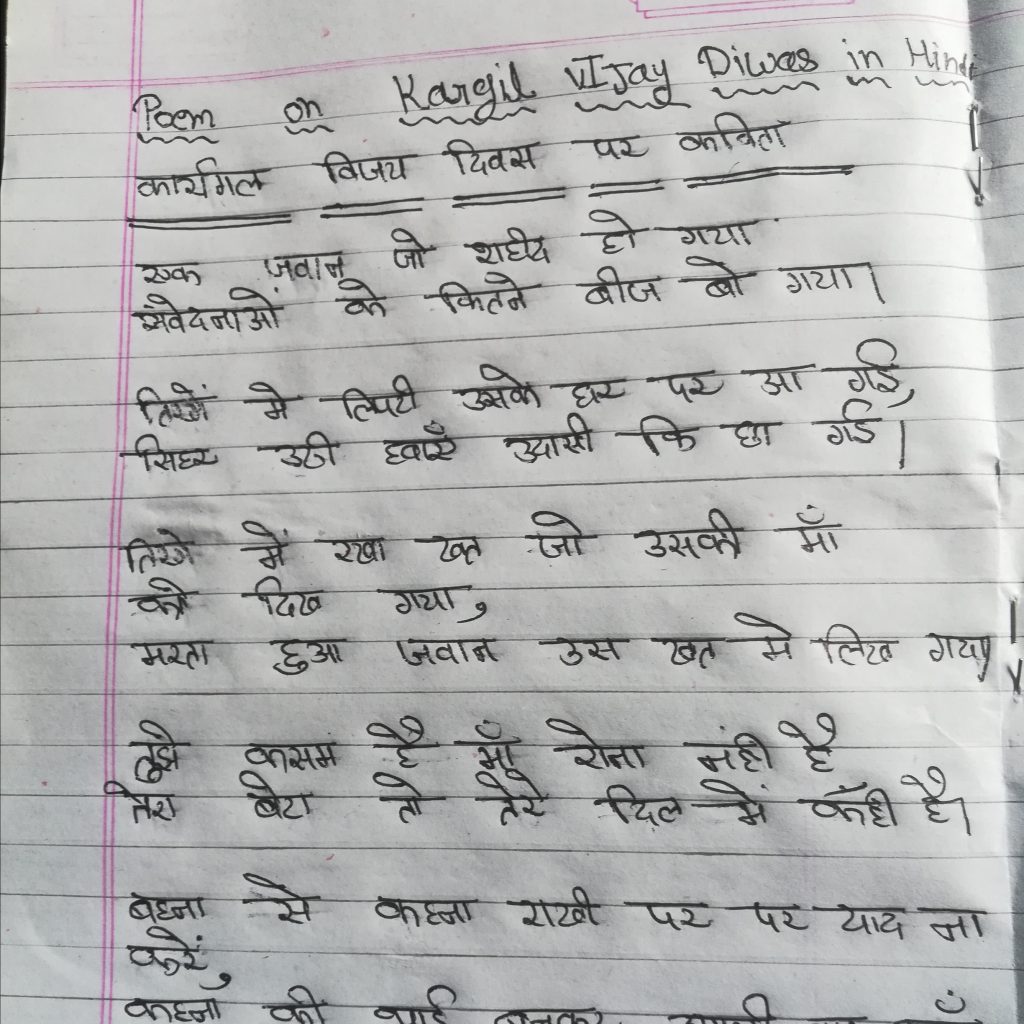 Poem on Kargil Vijay Diwas in Hindi
कारगिल विजय दिवस पर कविता
एक जवान जो शहीद हो गया
संवेदनाओं के कितने बीज बो गया।
तिरंगें मे लिपटी उसके घर पर आ गई,
सिहर उठी हवाएँ उदासी कि छा गई।
तिरंगे में रखा खत जो उसकी माँ
को दिख गया,
मरता हुआ जवान उस खत मे लिख गया।
तुझे कसम है माँ रोना नंही है
तेरा बेटा तो तेरे दिल में कँही है।
बहना से कहना राखी पर पर याद ना
करें,
कहना की भाई बनकर